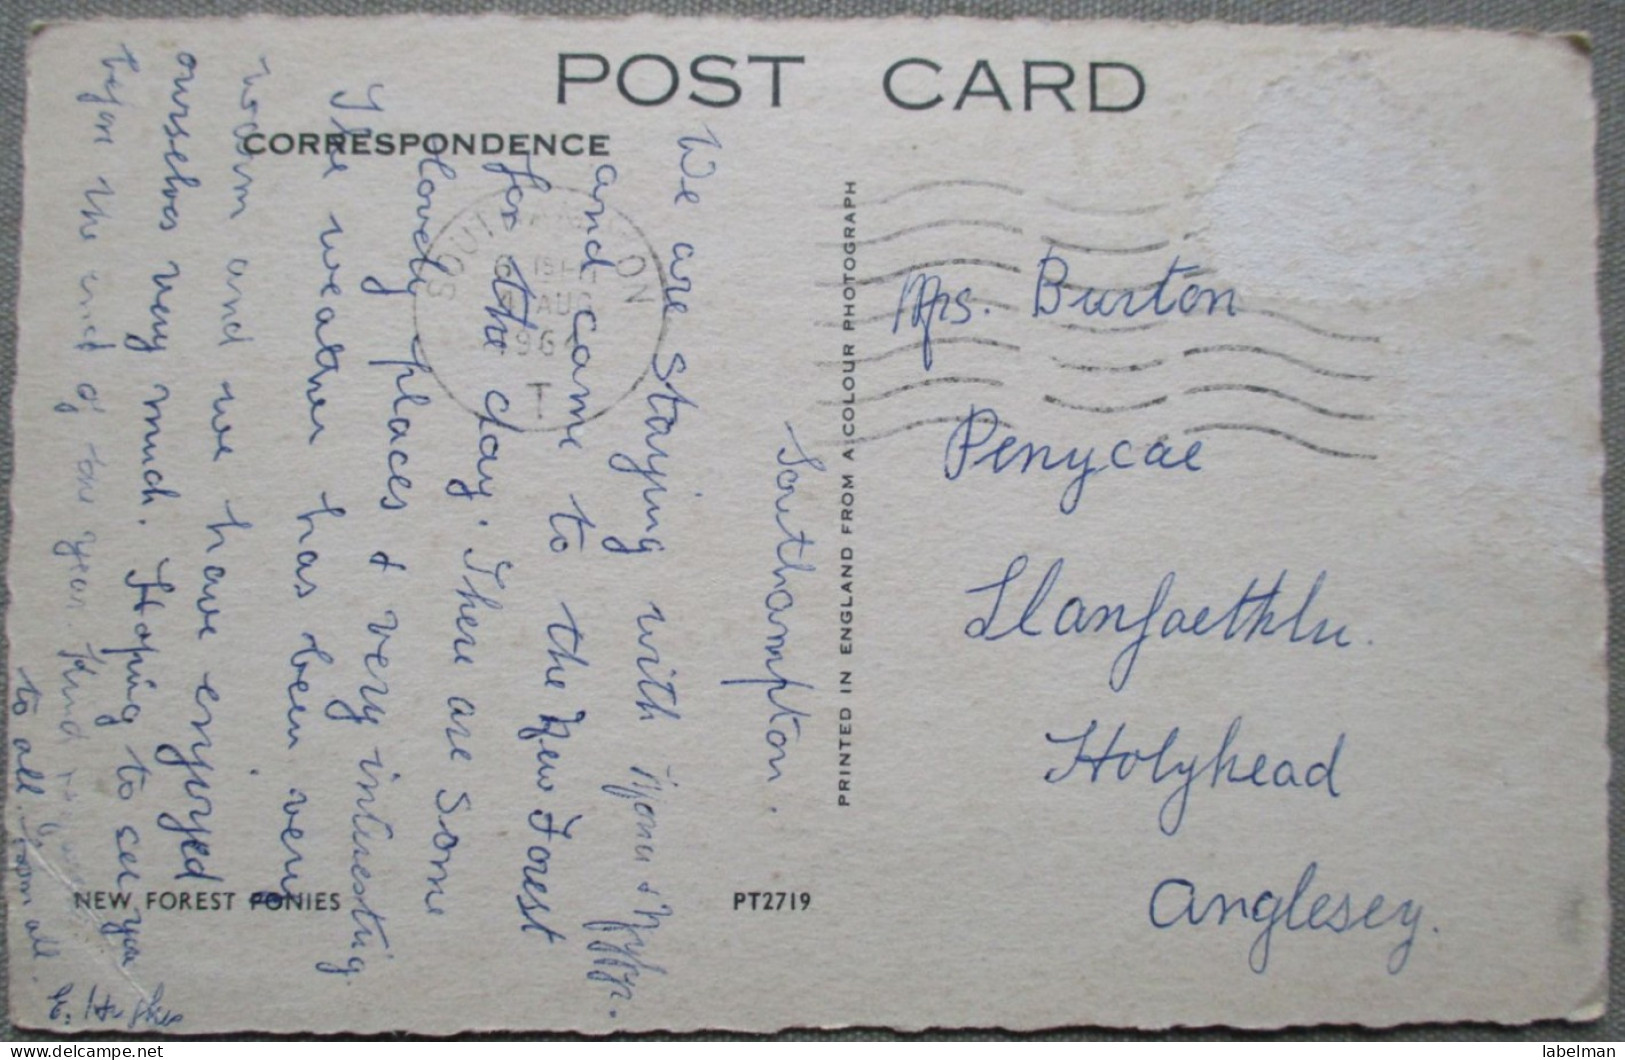 POST CARD
CORRESPONDENCE
Southampton.
We are staying with
and came to the New Forest
for the day. There are some
lovely places & very interesting.
The weather has been very
warm and we have enjoyed
ourselves very much. Hoping to see you
before the end of the year. Kind
to all from all.
SOUTHAMPTON
AUG
196
T
PRINTED IN ENGLAND FROM A COLOUR PHOTOGRAPH
Mrs. Burton
Penycae
Llanfaethlu.
Holyhead
Anglesey.
NEW FOREST PONIES
PT2719
labelman
delcampe.net